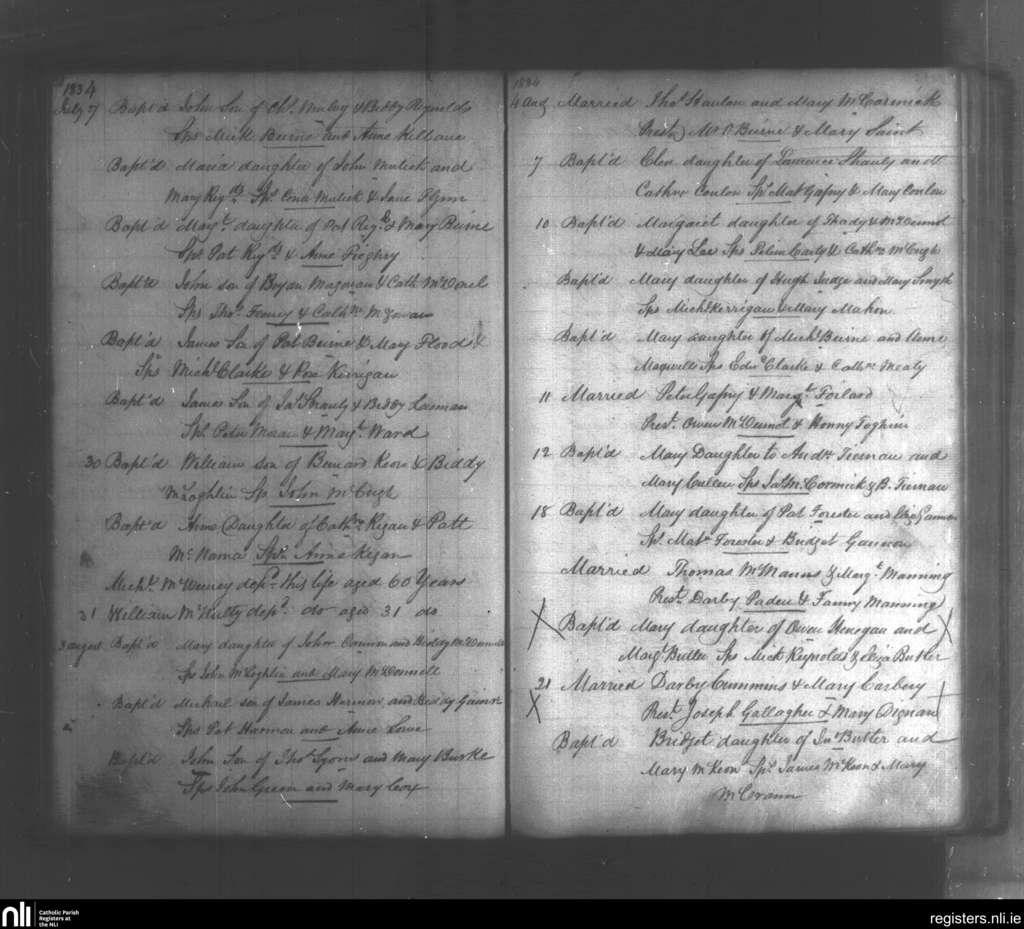 1834
July 7 Bapt'd John Son of Chs. Mulvy & Biddy Reynolds
Sps Mick Beirne and Anne Killane
Bapt'd Maria daughter of John Mulick and
Mary Reyds Sps. Mulick & Jane Flynn
Bapt'd Margt. daughter of Pat Reyds & Mary Beirne
Sps Pat Reyds & Anne
Bapt'd John son of Bryan Magauran & Cath
Sps Thos. Feeney & Cathne McGowan
Bapt'd James Son of Pat Beirne & Mary Flood &
Sps Michl Clarke & Rose Kerrigan
Bapt'd James Son of Jas Shanly & Biddy
Sps. Peter Moran & Mary. Ward
30 Bapt'd William son of Bernard Keon & Biddy
McLoghlin Sp. John McKeigh
Bapt'd Anne Daughter of Cathne Regan & Patt
McNama Spn Anne Regan
Michl. McWeeney depd. this life aged 60 Years
31 William McNulty depd. do aged 31 do
3 august Bapt'd Mary daughter of John and Biddy McConnell
Sps John McLoghlin and Mary McDonnell
Bapt'd Michael son of James Harmon and Biddy Gannon
Sps Pat Harmon and Anne Lowe
Bapt'd John Son of Thos Lyons and Mary Burke
Sps John Green and Mary Cox
1834
4 Aug Married Thos. Hanlon and Mary McCormick
Prest. Mr P. Beirne & Mary Saint
7 Bapt'd Elen daughter of Laurence Shanly and
Cathne Conlon Sps Mat Gafny & Mary Conlon
10 Bapt'd Margaret daughter of Thady McDermot
& Mary Lee Sps Peter Carty & Cathne McKeigh
Bapt'd Mary daughter of Hugh Judge and Mary Smyth
Sps Michl Kerrigan & Mary Mahon
Bapt'd Mary daughter of Michl Beirne and Anne
Maxwell Sps Edwd Clarke & Cathne Meaty
11 Married Peter Gafny & Margt.
Prest. Owen McDermot & Honny
12 Bapt'd Mary Daughter to Andw Tiernan and
Mary Cullen Sps Jas McCormick & B. Tiernan
18 Bapt'd Mary daughter of Pat Forester and Gannon
Sps Matw Forester & Bridget Gannon
Married Thomas McManus & Margt Manning
Prest. Darby Paden & Fanny Manning
Bapt'd Mary daughter of Owen Henegan and
Margt Butler Sps Mick Reynolds & Eliza Butler
21 Married Darby Cummins & Mary Carbery
Prest. Joseph Gallagher & Mary Dignan
Bapt'd Bridget daughter of Jas Butler and
Mary McKeon Sps. James McKeon & Mary
McCrann
nli Catholic Parish
Registers at
the NLI
registers.nli.ie